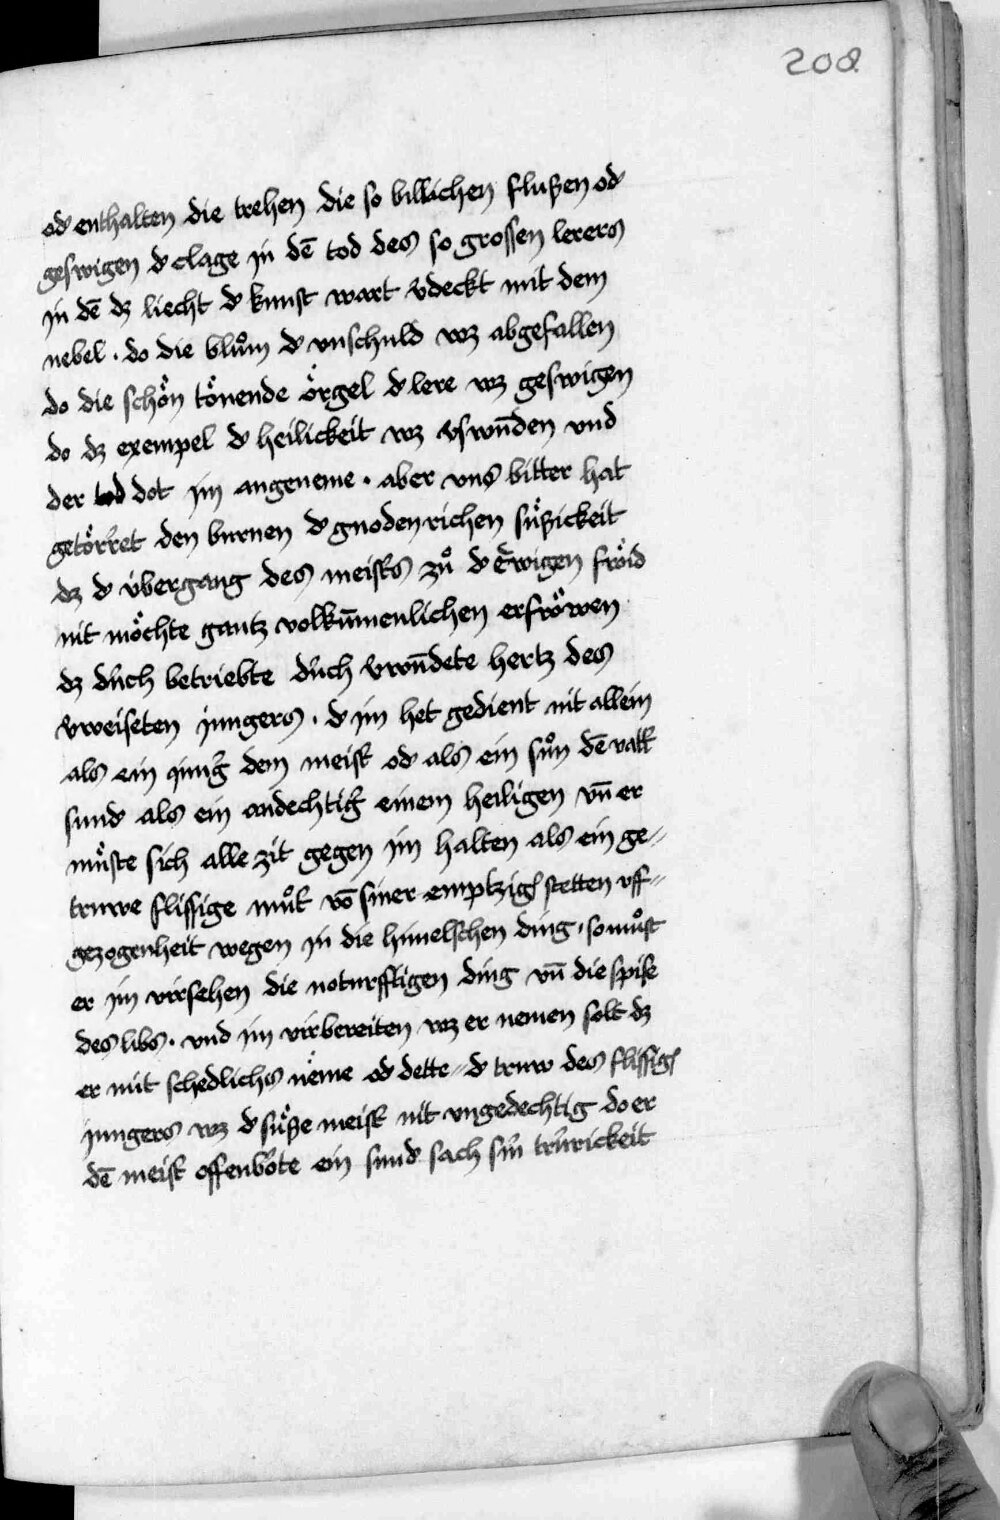 208
od̕ enthalten die trehen die so billichen flussen od̕
geswigen d̕ clage in dē tod des so grossen lerers
in dē dz liecht d̕ kunst wart v̕deckt mit dem
nebel · do die blům d̕ vnschuld wz abgefallen
do die schön tönende örgel d̕ lere wz geswigen
do dz exempel d̕ heilickeit wz v̕swūden vnd
der tod dot im angeneme · aber vns bitter hat
getörret den burnen d̕ gnodenrichen süssickeit
dz d̕ übergang des meist̕s zů d̕ ewigen fröid
nit möchte gantz volkūmenlichen erfröwen
dz durch betriebte durch v̕wūdete hertz des
v̕weiseten jungers · d̕ im het gedient nit allein
als ein jung̕ dem meist̕ od̕ als ein sůn dē vatt̕
sund̕ als ein andechtig̕ einem heiligen vn̄ er
můste sich alle zit gegen im halten als ein ge-
truwe flissige můt̕ vō siner emptzig̕ stetten vff-
gezogenheit wegen in die himelschen ding · so můst
er im virsehen die noturfftigen ding vn̄ die spise
des libs · vnd im virbereiten wz er nemen solt dz
er nüt schedlichs neme od̕ dette - d̕ truw des flissig̕
jungers wz d̕ süsse meist̕ nit vngedechtig do er
dē meist̕ offenbote ein sund̕ sach sin trurickeit